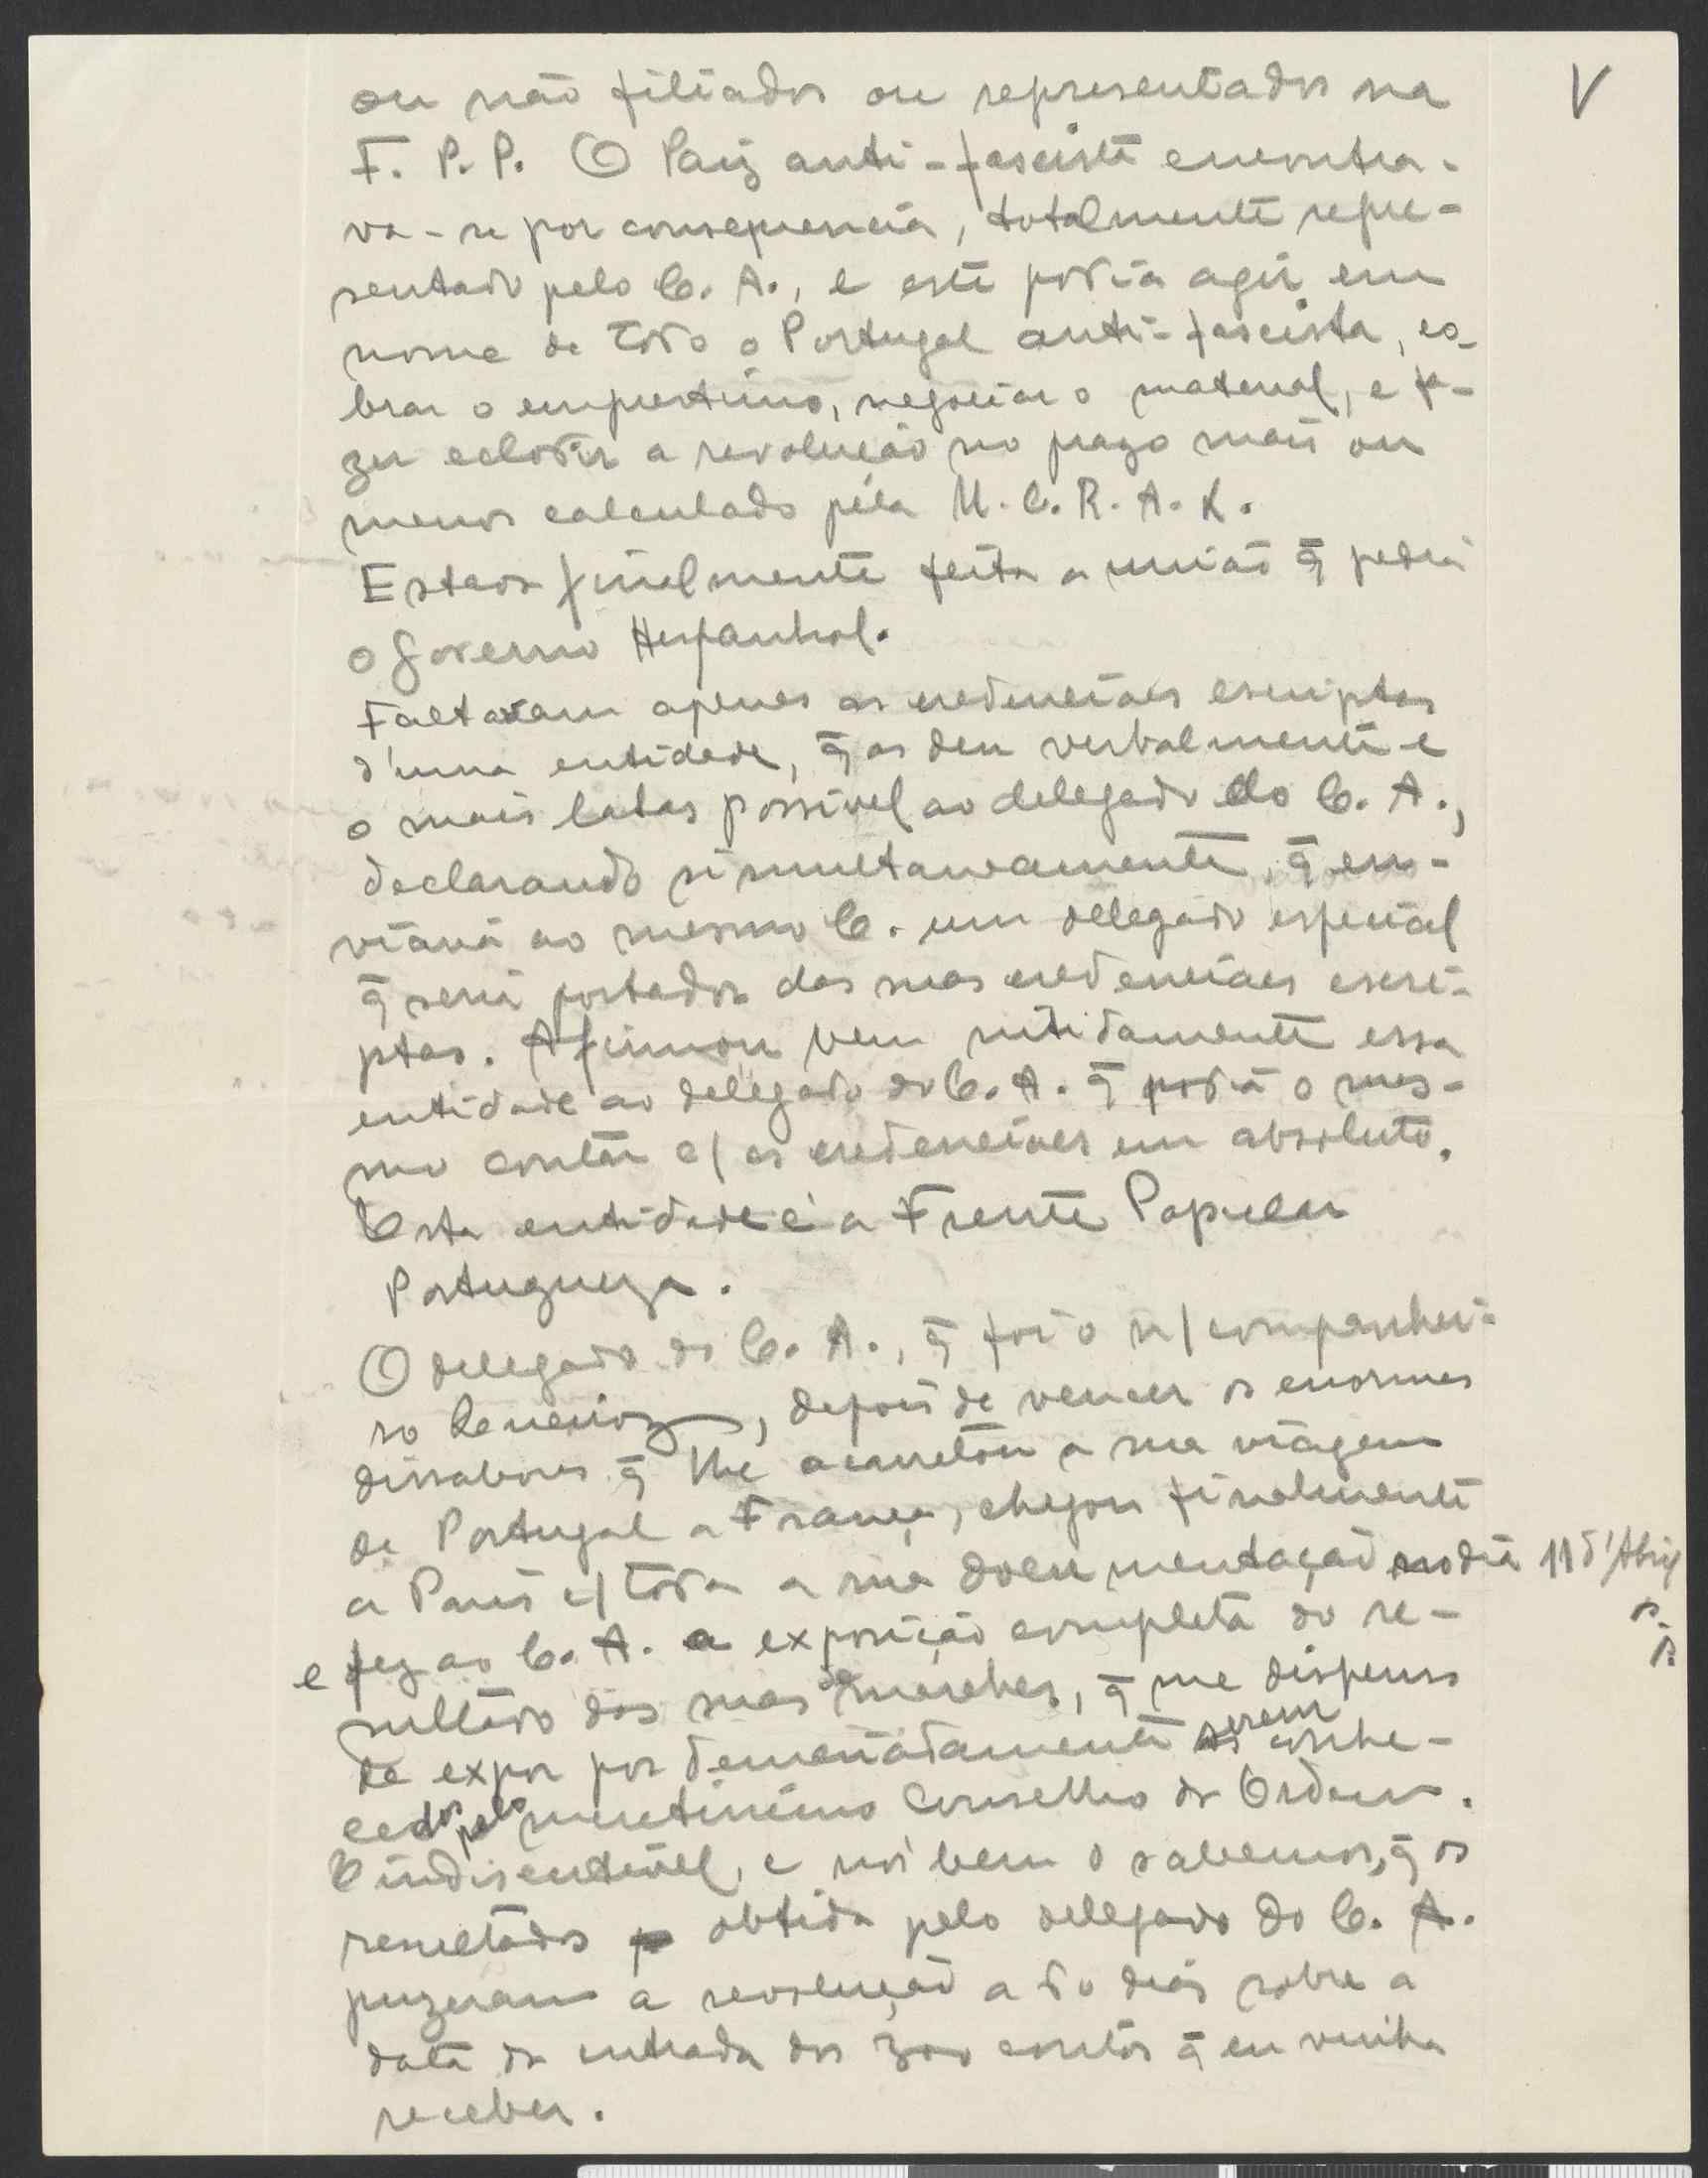 V
ou não filiados ou representados na
F. P. P. O Paiz anti-fascista encontra-
va-se por consequencia, totalmente repre-
sentado pelo C. A., e este podia agir em
nome de todo o Portugal anti-fascista, co-
brar o emprestimo, negociar o material, e fa-
zer eclodir a revolução no prazo mais ou
menos calculado pela U. C. R. A. L.
Estava finalmente feita a união q̃ pedia
o Governo Hespanhol.
Faltavam apenas as credenciaes escriptas
d'uma entidade, q̃ as deu verbalmente e
o mais latas possivel ao delegado do C. A.,
declarando simultaneamente, q̃ en-
viava ao mesmo C. um delegado especial
q̃ seria portador das suas credenciaes escri-
ptas. Afirmou bem nitidamente essa
entidade ao delegado do C. A. q̃ podia o mes-
mo contar c/ as credenciaes em absoluto.
Esta entidade é a Frente Popular
Portugueza.
O delegado do C. A., q̃ foi o n/ companhei-
ro, depois de vencer os enormes
dissabores q̃ lhe acarretou a sua viagem
de Portugal a França, chegou finalmente
a Paris c/ toda a sua documentação no dia 11 d'Abril
p. p.
e fez ao C. A. a exposição completa do re-
sultado das suas démarches, q̃ me dispenso
de expor por demasiadamente serem conhe-
cidos pelo meretissimo Conselho da Ordem.
É indiscutivel, e nós bem o sabemos, q̃ os
resultados obtidos pelo delegado do C. A.
puzeram a revolução a 60 dias sobre a
data da entrada dos 300 contos q̃ eu vinha
receber.